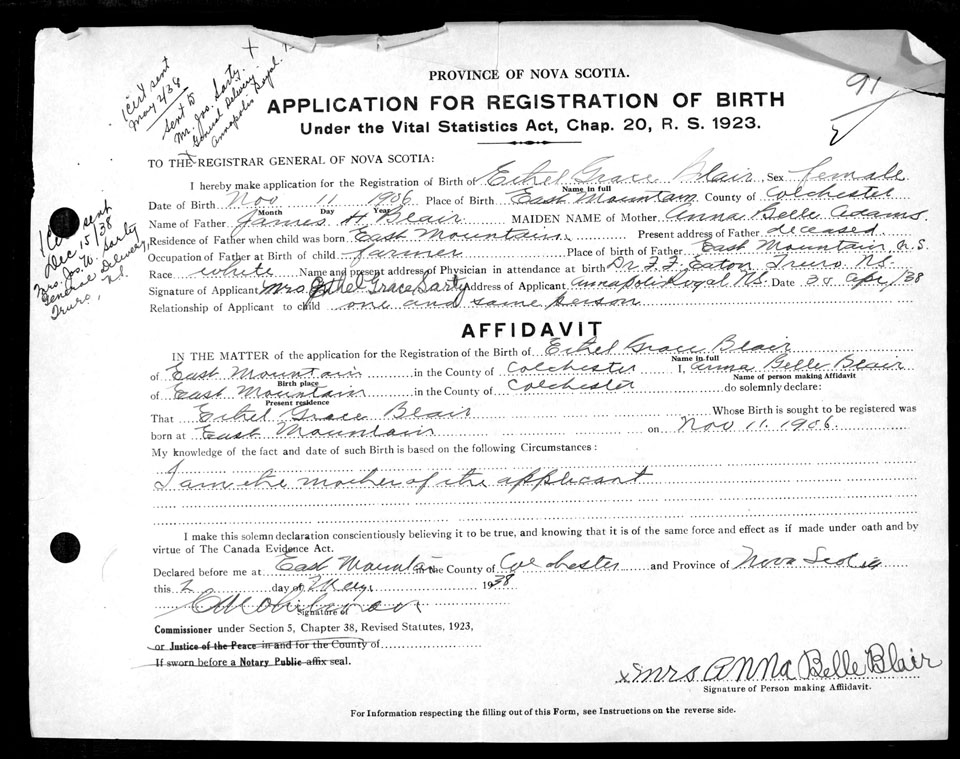 1 Cert sent
May 2/38
Sent to
Mr. Jas. Sarty.
General Delivery
Annapolis Royal.
91
PROVINCE OF NOVA SCOTIA.
APPLICATION FOR REGISTRATION OF BIRTH
Under the Vital Statistics Act, Chap. 20, R. S. 1923.
TO THE REGISTRAR GENERAL OF NOVA SCOTIA:
I hereby make application for the Registration of Birth of Ethel Grace Blair Sex female
Name in full
Date of Birth Nov 11 1906 Place of Birth East Mountain County of Colchester
Month Day Year
Name of Father James H Blair MAIDEN NAME of Mother Anna Belle Adams.
Residence of Father when child was born East Mountain Present address of Father deceased
Occupation of Father at Birth of child farmer Place of birth of Father East Mountain N.S.
Race white Name and present address of Physician in attendance at birth Dr. F.F. Eaton Truro N.S.
Signature of Applicant Mrs Ethel Grace Sarty Address of Applicant Annapolis Royal N.S. Date Apr/38
Relationship of Applicant to child one and same person
1 Cert sent
Dec 15/38
Mrs Jos. W. Sarty
General Delivery,
Truro, N.S.
AFFIDAVIT
IN THE MATTER of the application for the Registration of the Birth of Ethel Grace Blair
Name in full
of East Mountain in the County of Colchester I, Anna Belle Blair
Birth place Name of person making Affidavit
of East Mountain in the County of Colchester do solemnly declare:
Present residence
That Ethel Grace Blair Whose Birth is sought to be registered was
born at East Mountain on Nov 11. 1906.
My knowledge of the fact and date of such Birth is based on the following Circumstances:
I am the mother of the applicant
I make this solemn declaration conscientiously believing it to be true, and knowing that it is of the same force and effect as if made under oath and by
virtue of The Canada Evidence Act.
Declared before me at East Mountain in the County of Colchester and Province of Nova Scotia
this 2 day of May 1938
Signature of
Commissioner under Section 5, Chapter 38, Revised Statutes, 1923,
or Justice of the Peace in and for the County of
If sworn before a Notary Public affix seal.
x Mrs ANNA Belle Blair
Signature of Person making Affidavit.
For Information respecting the filling out of this Form, see Instructions on the reverse side.